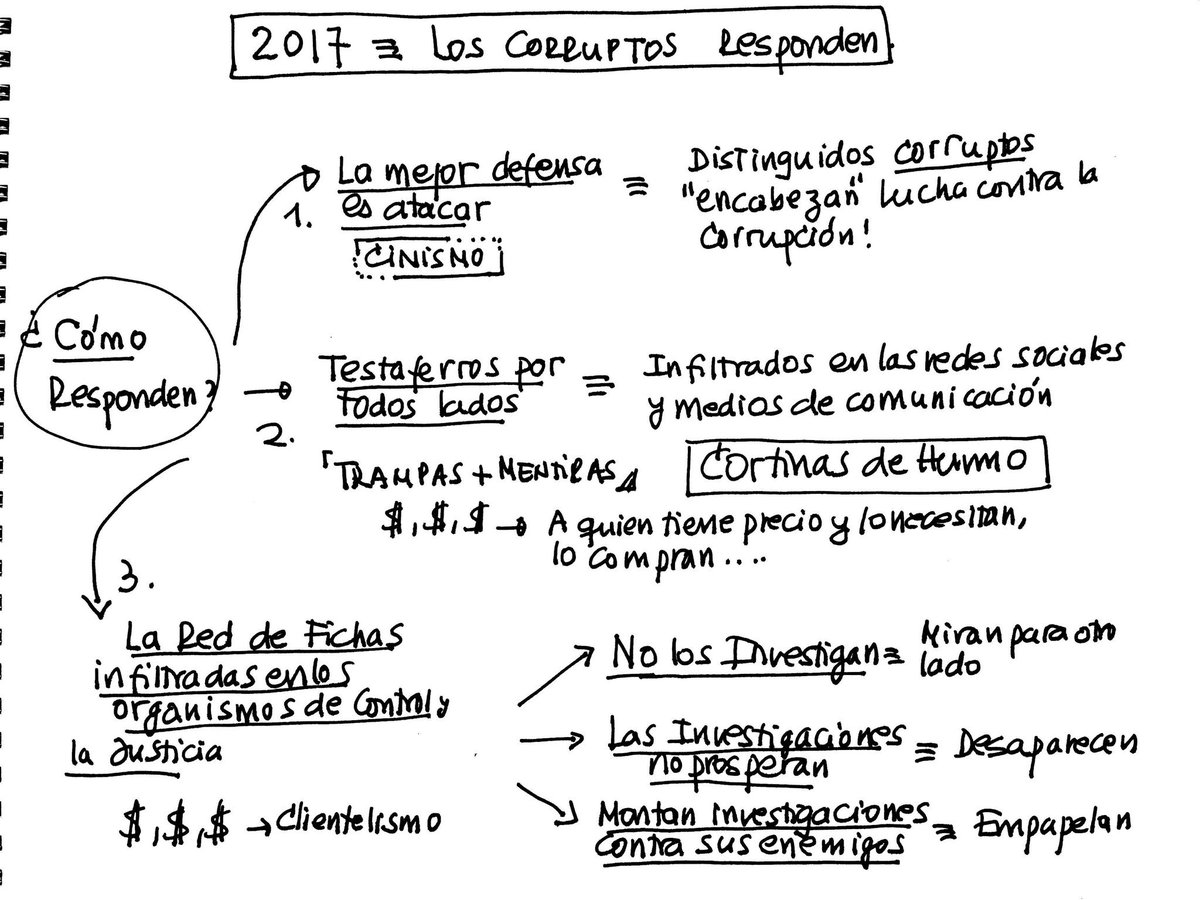 2017 ≡ Los CORRUPTOS Responden.
1. La mejor defensa
es atacar
CINISMO
≡ Distinguidos corruptos
"encabezan" lucha contra la
corrupción!
¿Cómo
Responden?
2. Testaferros por
todos lados
≡ Infiltrados en las redes sociales
y medios de comunicación
"TRAMPAS + MENTIRAS"
Cortinas de Humo
$, $, $ → A quien tiene precio y lo necesitan,
lo compran....
3.
La Red de Fichas
infiltradas en los
organismos de Control y
la Justicia
$, $, $ → Clientelismo
→ No los Investigan ≡ Miran para otro
lado
→ Las Investigaciones
no prosperan ≡ Desaparecen
→ Montan investigaciones
contra sus enemigos ≡ Empapelan